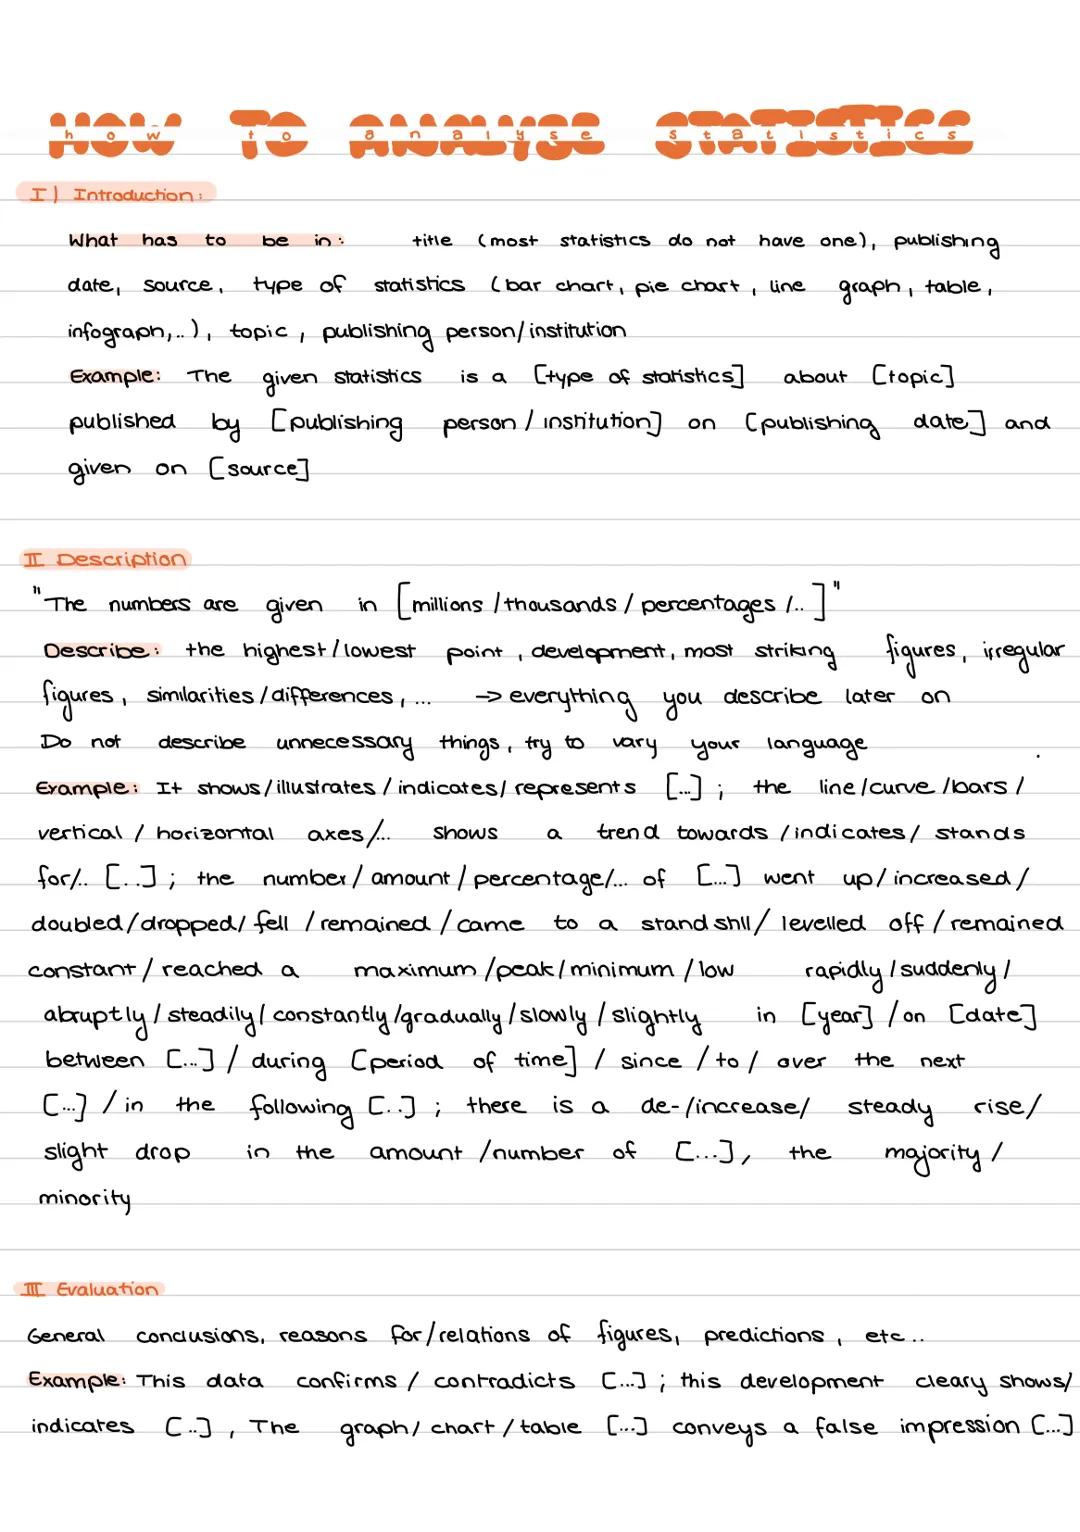 HOW TO ANALYSE STATISTICS
how to analyse statistics
I) Introduction:
What has to be in: title (most statistics do not have one), publishing
date, source, type of statistics (bar chart, pie chart, line graph, table,
infograph,..), topic, publishing person/institution
Example: The given statistics is a [type of statistics] about [topic]
published by [publishing person / institution] on [publishing date] and
given on [source]
II Description
"The numbers are given in [millions /thousands / percentages /..]"
Describe: the highest/lowest point, development, most striking figures, irregular
figures, similarities/differences, ... → everything you describe later on
Do not describe unnecessary things, try to vary your language
Example: It shows/illustrates / indicates/ represents [...] ; the line/curve /bars /
vertical / horizontal axes/... shows a trend towards / indicates/ stands
for/.. [..] ; the number/ amount / percentage/... of [...] went up/ increased/
doubled/dropped/ fell / remained / came to a stand still/ levelled off / remained
constant / reached a maximum /peak/minimum / low rapidly / suddenly /
abruptly / steadily/ constantly /gradually / slowly / slightly in [year] / on [date]
between [...] / during [period of time] / since / to / over the next
[...] / in the following [..] ; there is a de-/increase/ steady rise/
slight drop in the amount /number of [...], the majority /
minority
III Evaluation
General conclusions, reasons for/relations of figures, predictions, etc..
Example: This data confirms / contradicts [...] ; this development cleary shows/
indicates [..] , The graph/ chart / table [...] conveys a false impression [...]